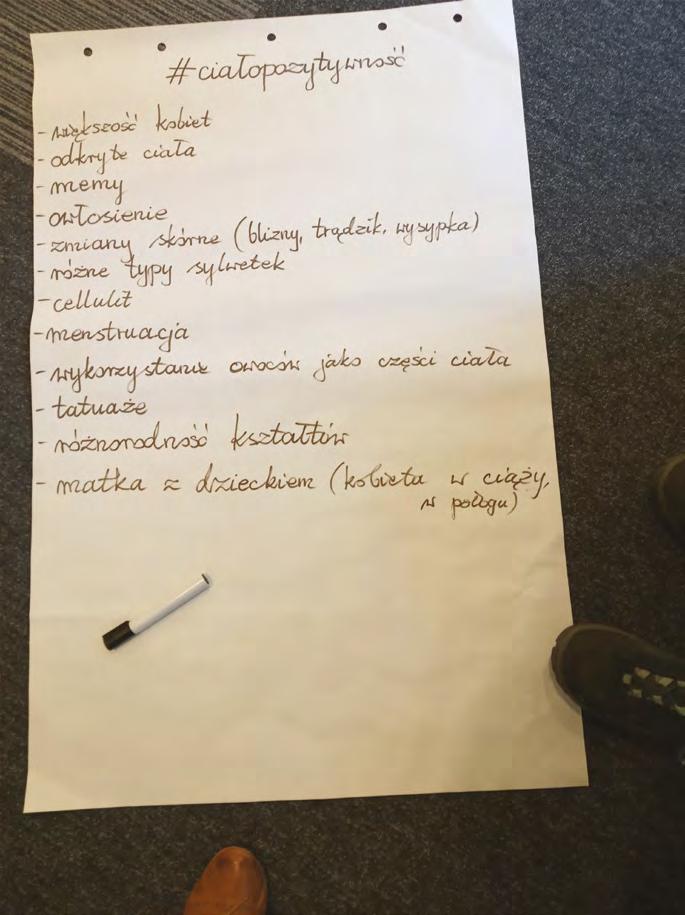 #ciałopozytywność
- większość kobiet
- odkryte ciała
- memy
- owłosienie
- zmiany skórne (blizny, trądzik, wysypka)
- różne typy sylwetek
- cellulit
- menstruacja
- wykorzystanie owoców jako części ciała
- tatuaże
- różnorodność kształtów
- matka z dzieckiem (kobieta w ciąży,
w połogu)